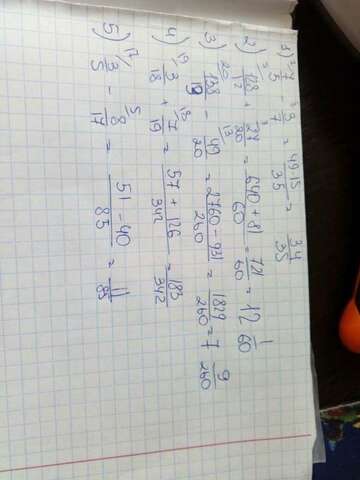 1) 7/5 - 3/7 = 49-15/35 = 34/35
2) 128/12 + 27/20 = 640+81/60 = 721/60 = 12 1/60
3) 20 138/13 - 13 49/20 = 2760-931/260 = 1829/260 = 7 9/260
4) 19 3/18 + 18 7/19 = 57+126/342 = 183/342
5) 17 3/5 - 5 8/17 = 51-40/85 = 11/85